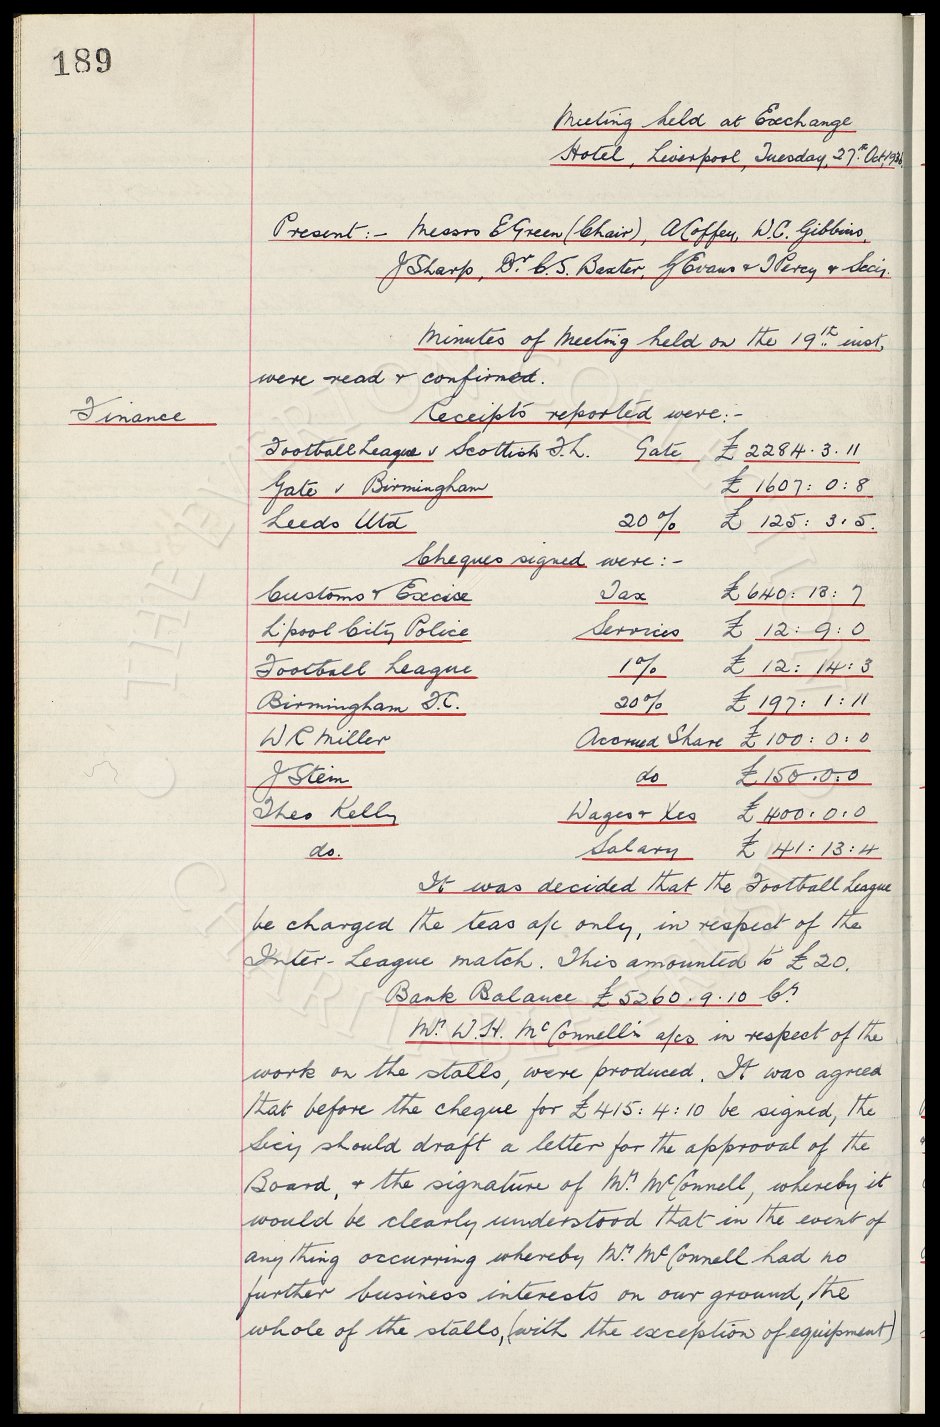 189
Meeting held at Exchange
Hotel, Liverpool, Tuesday, 27th Oct, 1936.
Present:- Messrs E Green (Chair), A Coffey, W.C. Gibbins,
J Sharp, Dr C.S. Baxter, G Evans & T Percy & Secy.
Minutes of Meeting held on the 19th inst,
were read & confirmed.
Finance
Receipts reported were:-
Football League v Scottish F.L. Gate £2284.3.11
Gate v Birmingham £1607:0:8
Leeds Utd 20% £125:3.5.
Cheques signed were:-
Customs & Excise Tax £640:13:7
L'pool City Police Services £12:9:0
Football League 1% £12:14:3
Birmingham F.C. 20% £197:1:11
W R Miller Accrued Share £100:0:0
J Stein do £150.0.0
Theo Kelly Wages & Xes £400:0:0
do. Salary £41:13:4
It was decided that the Football League
be charged the teas a/c only, in respect of the
Inter-League match. This amounted to £20.
Bank Balance £5260.9.10 Cr
Mr W.H. McConnell's a/cs in respect of the
work on the stalls, were produced. It was agreed
that before the cheque for £415:4:10 be signed, the
Secy should draft a letter for the approval of the
Board, & the signature of Mr McConnell, whereby it
would be clearly understood that in the event of
anything occurring whereby Mr McConnell had no
further business interests on our ground, the
whole of the stalls, (with the exception of equipment)
THE EVERTON COLLECTION
CHARITABLE TRUST